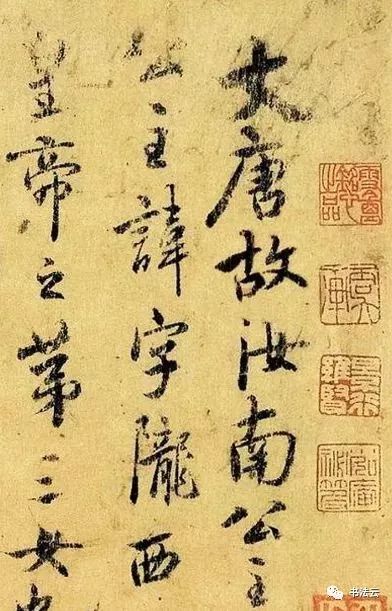 大唐故汝南公主
公主諱字隴西
皇帝之第三女也
书法云